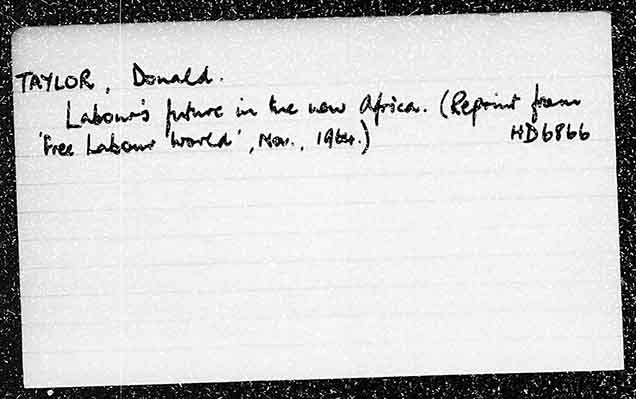 TAYLOR, Donald.
Labour's future in the new Africa. (Reprint from
'Free Labour World', Nov., 1964.) HD6866